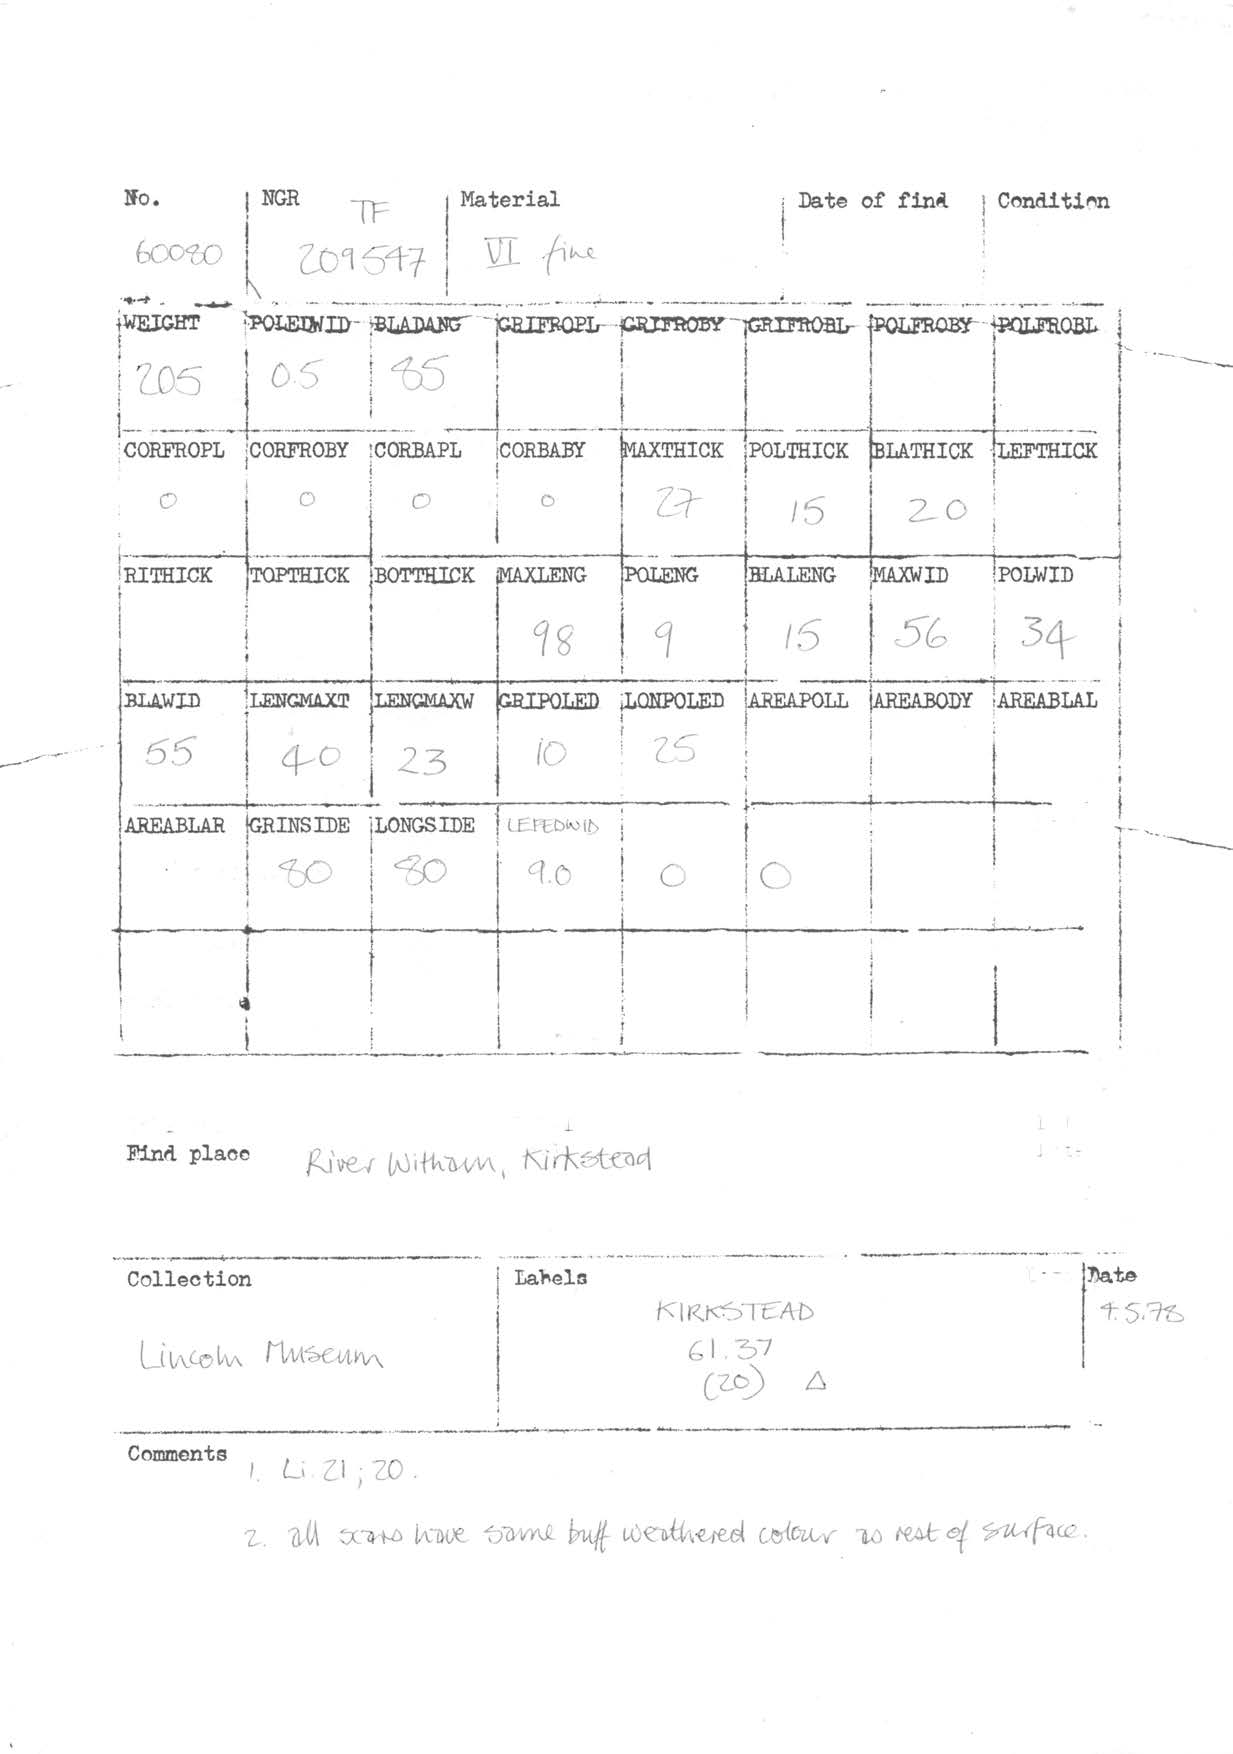 No. NGR TF Material Date of find Condition
60080 209547 VI fine
WEIGHT POLEDWID BLADANG GRIFROPL GRIFROBY GRIFROBL POLFROBY POLFROBL
205 0.5 85
CORFROPL CORFROBY CORBAPL CORBABY MAXTHICK POLTHICK BLATHICK LEFTHICK
0 0 0 0 27 15 20
RITHICK TOPTHICK BOTTHICK MAXLENG POLENG BLALENG MAXWID POLWID
98 9 15 56 34
BLAWID LENGMAXT LENGMAXW GRIPOLED LONPOLED AREAPOLL AREABODY AREABLAL
55 40 23 10 25
AREABLAR GRINSIDE LONGSIDE LEFEDWID
80 80 9.0 0 0
Find place River Witham, Kirkstead
Collection Labels Date
KIRKSTEAD 4.5.78
Lincoln Museum 61.37
(20) Δ
Comments 1. Li.21;20.
2. all scars have same buff weathered colour as rest of surface.